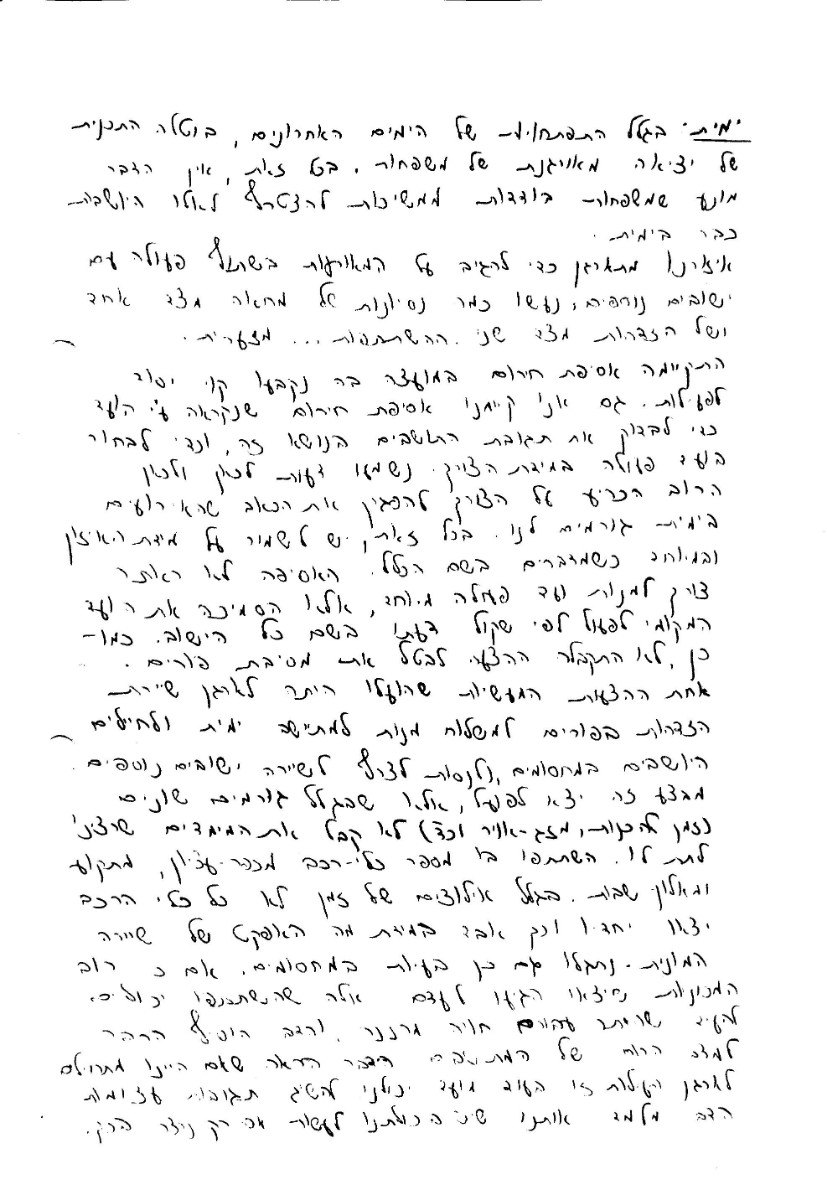 "ימית" בגלל התפתחויות של הימים האחרונים, בוטלה התכנית
של יציאה מאורגנת של משפחות. בכל זאת, אין הדבר
מונע שמשפחות בודדות ממשיכות להצטרף לאלו היושבות
כבר בימית.
איזורנו מתארגן כדי להגיב על המאורעות בשתוף פעולה עם
ישובים נוספים, נעשו כמה נסיונות של מחאה מצד אחד
ושל הזדהות מצד שני. ההשתתפות... מצערית.
התקיימה אסיפת חירום במועצה בה נקבעו קוי יסוד
לפעילות. גם אנו קיימנו אסיפת חירום שנקראה ע"י הועד
כדי לבדוק את תגובת התושבים בנושא זה, וכדי לבחור
בועד פעולה במידת הצורך. נשמעו דעות לכאן ולכאן
הרוב הכריע על הצורך להפגין את הכאב שהאירועים
בימית גורמים לנו. בכל זאת, יש לשמור על מידת האיזון
ובמיוחד כשמדברים בשם הכלל. האסיפה לא ראתה
צורך למנות ועד פעולה מיוחד, אלא הסמיכה את הועד
המקומי לפעול לפי שקול דעתו בשם כל הישוב. כמו-
כן, לא התקבלה ההצעה לבטל את מסיבת פורים.
אחת ההצעות המעשיות שהועלו היתה לארגן שיירת
הזדהות בפורים למשלוח מנות למתיישבי ימית ולחיילים
היושבים במחסומים, ולנסות לצרף לשיירה ישובים נוספים.
מבצע זה יצא לפועל, אלא שבגלל גורמים שונים
(זמן להכנות, מזג-אויר וכד') לא קבל את המימדים שרצינו
לתת לו. השתתפו בו מספר כלי-רכב מכפר-עציון, מתקוע
ומאלון שבות. בגלל אילוצים של זמן לא כל כלי הרכב
יצאו יחדיו וכך אבד במידת מה האפקט של שיירה
המונית. נתגלו גם כן בעיות במחסומים. אם כי רוב
המכוניות שיצאו הגיעו ליעדם אלה שהשתתפו יכולים
להעיד שהיתה עבורם חויה מרגשת, והדבר הוסיף הרבה
למצב הרוח של המתישבים הדבר הראה שאם היינו מתחילים
לארגן פעילות זו בעוד מועד יכולנו להשיג תגובות עצומות
הדבר מלמד אותנו שיש ביכולתנו לעשות אם רק ניצור הרקע.